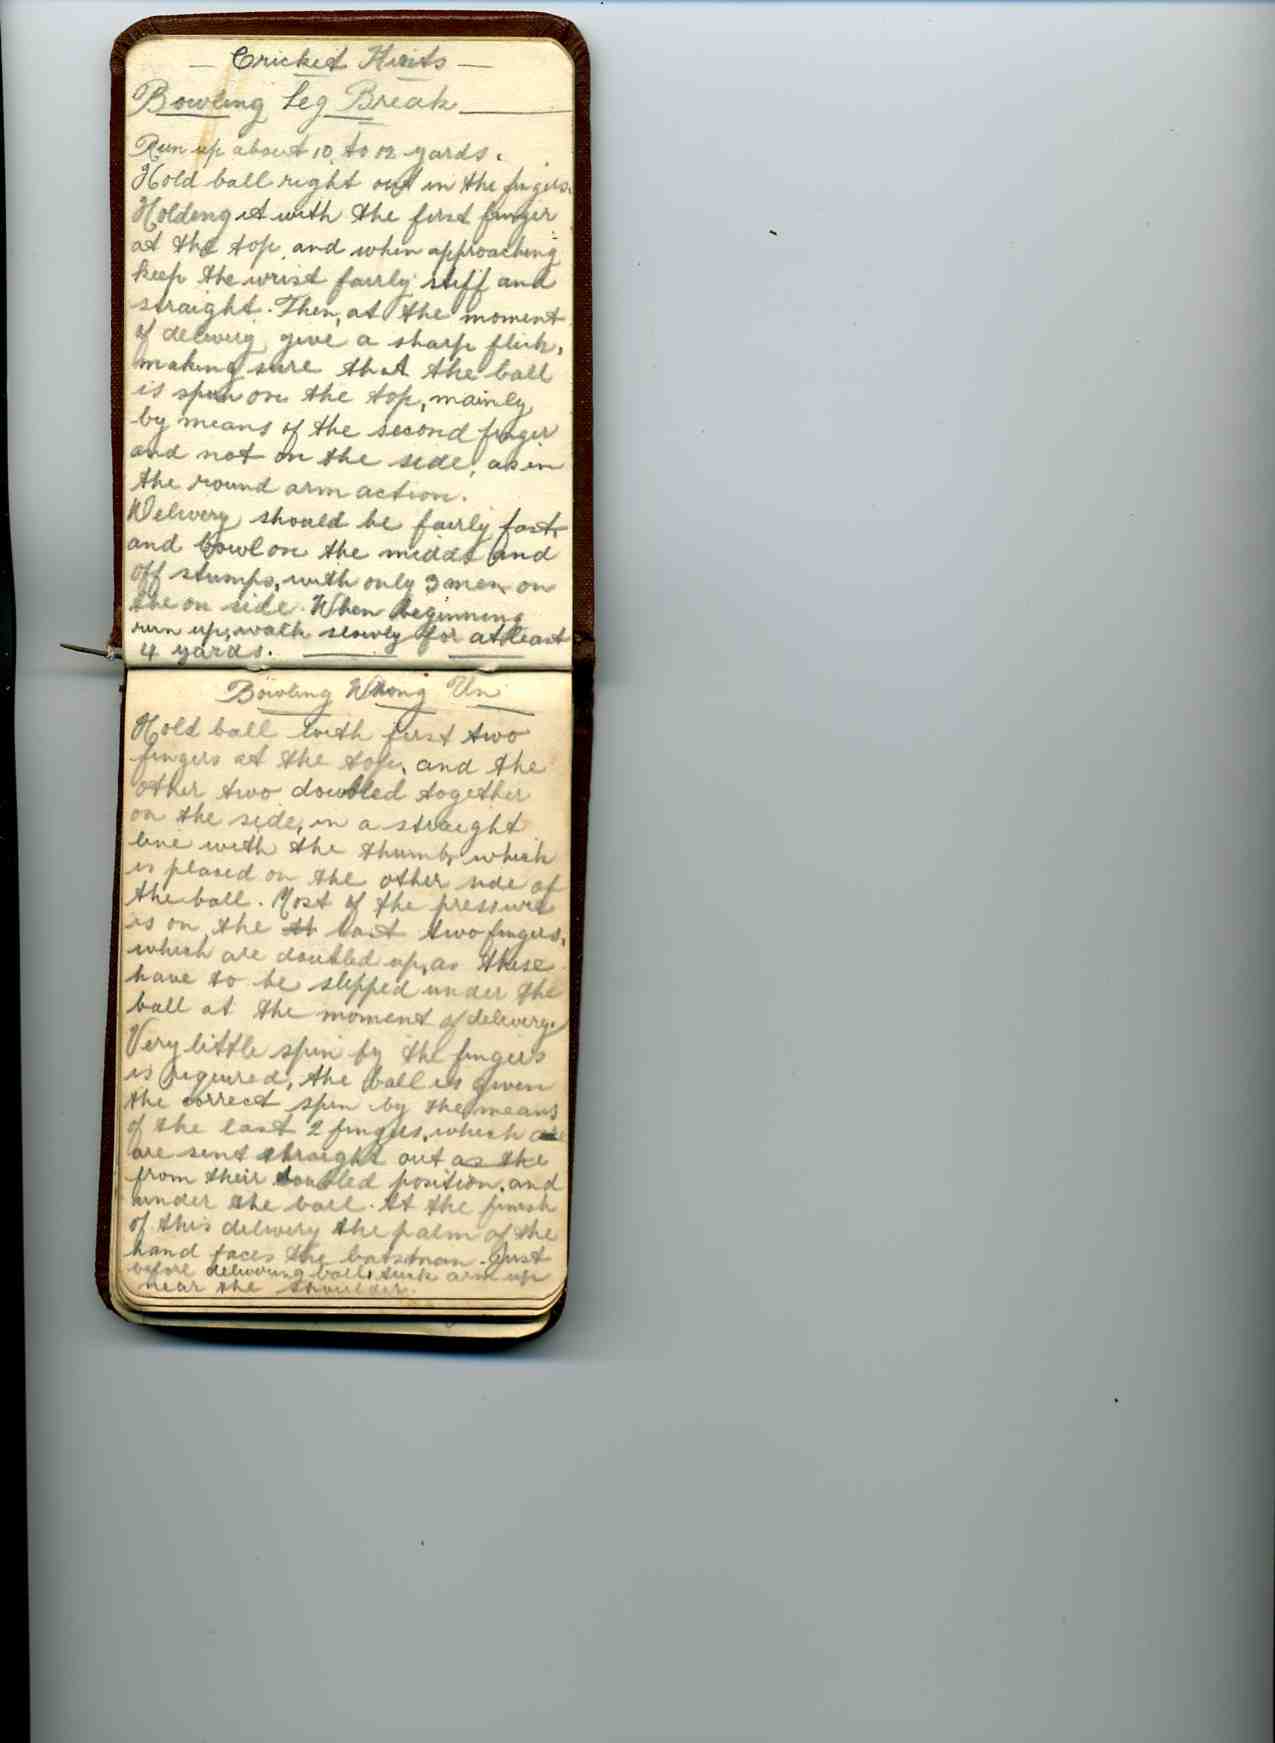 — Cricket Hints —
Bowling Leg Break
Run up about 10 to 12 yards.
Hold ball right out in the fingers.
Holding it with the first finger
at the top, and when approaching
keep the wrist fairly stiff and
straight. Then, at the moment
of delivery give a sharp flick,
making sure that the ball
is spun on the top, mainly
by means of the second finger
and not on the side, as in
the round arm action.
Delivery should be fairly fast,
and bowl on the middle and
off stumps, with only 3 men on
the on side. When beginning
run up, walk slowly for at least
4 yards.
Bowling Wrong Un
Hold ball with first two
fingers at the top, and the
other two doubled together
on the side, in a straight
line with the thumb, which
is placed on the other side of
the ball. Most of the pressure
is on the last two fingers,
which are doubled up, as these
have to be slipped under the
ball at the moment of delivery.
Very little spin by the fingers
is required, the ball is given
the correct spin by the means
of the last 2 fingers, which are
are sent straight out as the
from their doubled position, and
under the ball. At the finish
of this delivery the palm of the
hand faces the batsman. Just
before delivering ball, tuck arm up
near the shoulder.